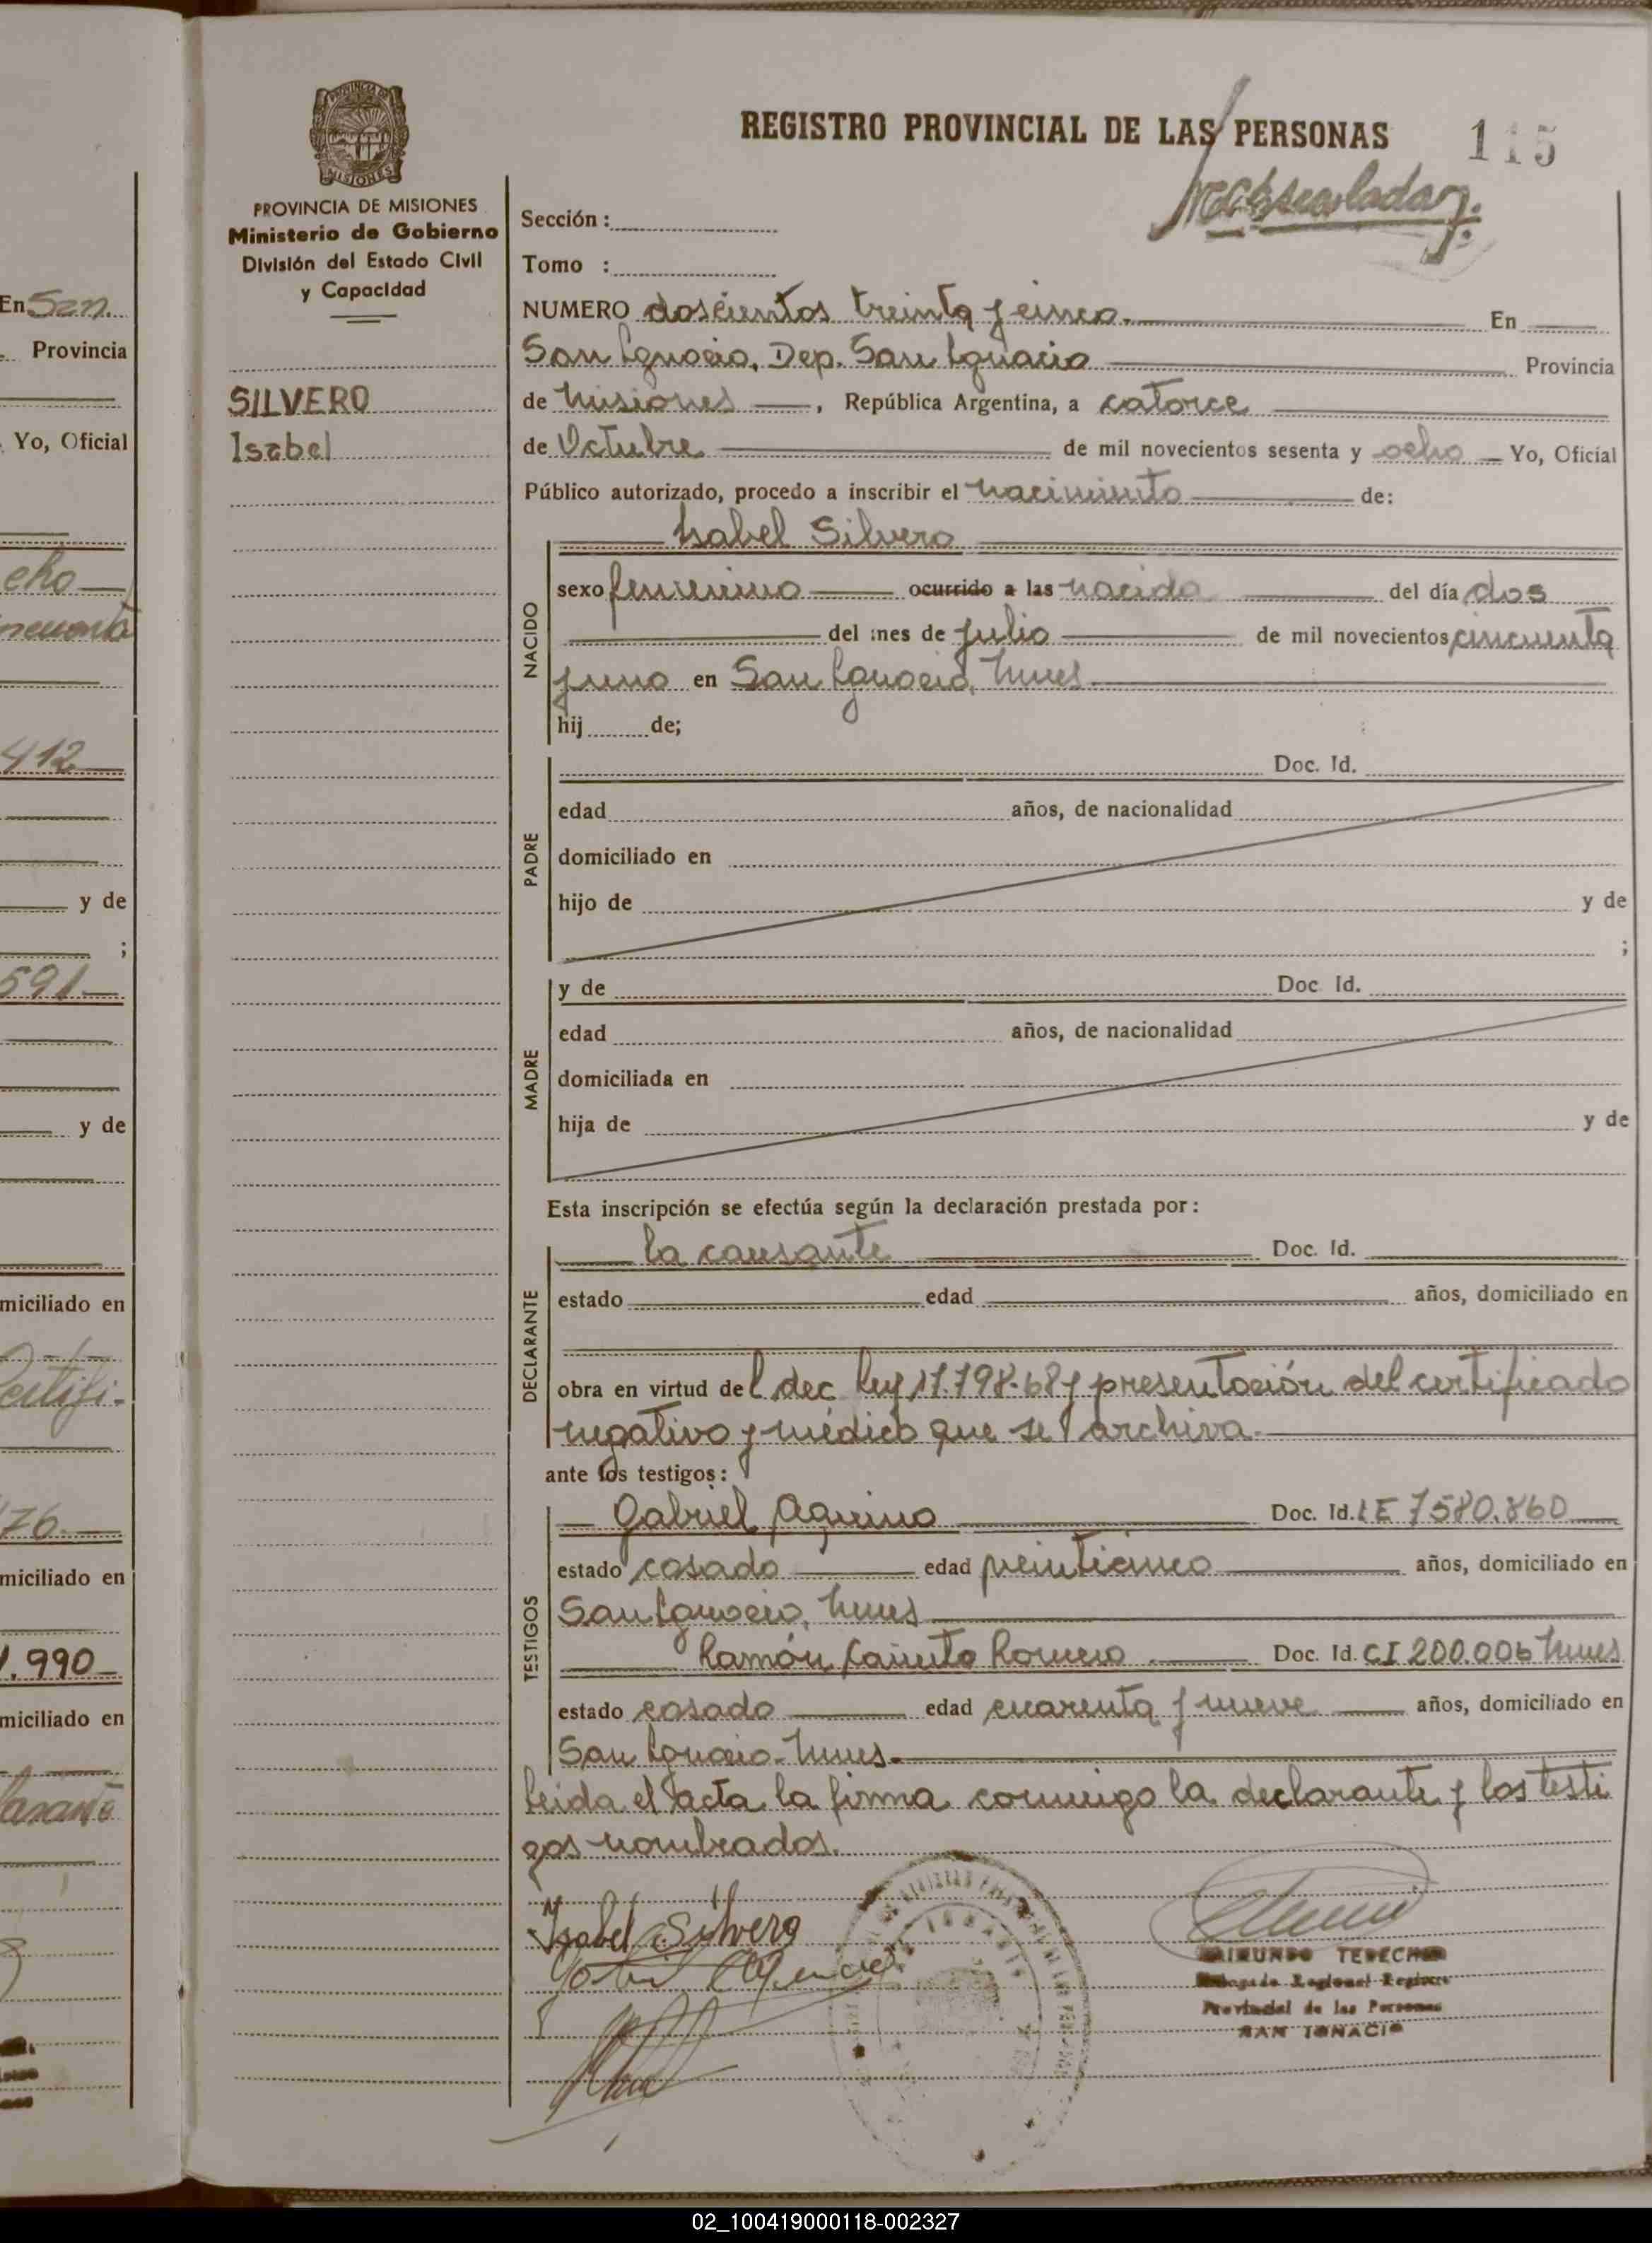 REGISTRO PROVINCIAL DE LAS PERSONAS
115
PROVINCIA DE MISIONES
Ministerio de Gobierno
División del Estado Civil
y Capacidad
SILVERO
Isabel
Sección :
Tomo :
NUMERO doscientos treinta y cinco. En
San Ignacio, Dep. San Ignacio Provincia
de Misiones, República Argentina, a catorce
de Octubre de mil novecientos sesenta y ocho Yo, Oficial
Público autorizado, procedo a inscribir el nacimiento de:
Isabel Silvero
NACIDO
sexo femenino ocurrido a las nacida del día dos
del mes de julio de mil novecientos cincuenta
y uno en San Ignacio, Mnes
hij de;
PADRE
Doc. Id.
edad años, de nacionalidad
domiciliado en
hijo de y de
;
MADRE
y de Doc. Id.
edad años, de nacionalidad
domiciliada en
hija de y de
Esta inscripción se efectúa según la declaración prestada por:
DECLARANTE
la causante Doc. Id.
estado edad años, domiciliado en
obra en virtud del dec ley 17.798-68 y presentación del certificado
negativo y médico que se archiva.
ante los testigos:
TESTIGOS
Gabriel Aquino Doc. Id. LE 7580.860
estado casado edad veinticinco años, domiciliado en
San Ignacio, Mnes
Ramón Romero Doc. Id. CI 200.006 Mnes
estado casado edad cuarenta y nueve años, domiciliado en
San Ignacio - Mnes.
leida el acta la firma conmigo la declarante y los testi
gos nombrados.
Isabel Silvero
Provincial de las Personas
SAN IGNACIO
En San
Provincia
Yo, Oficial
cho
412
y de
;
591
y de
miciliado en
Certifi-
76.
miciliado en
.990
miciliado en
02_100419000118-002327